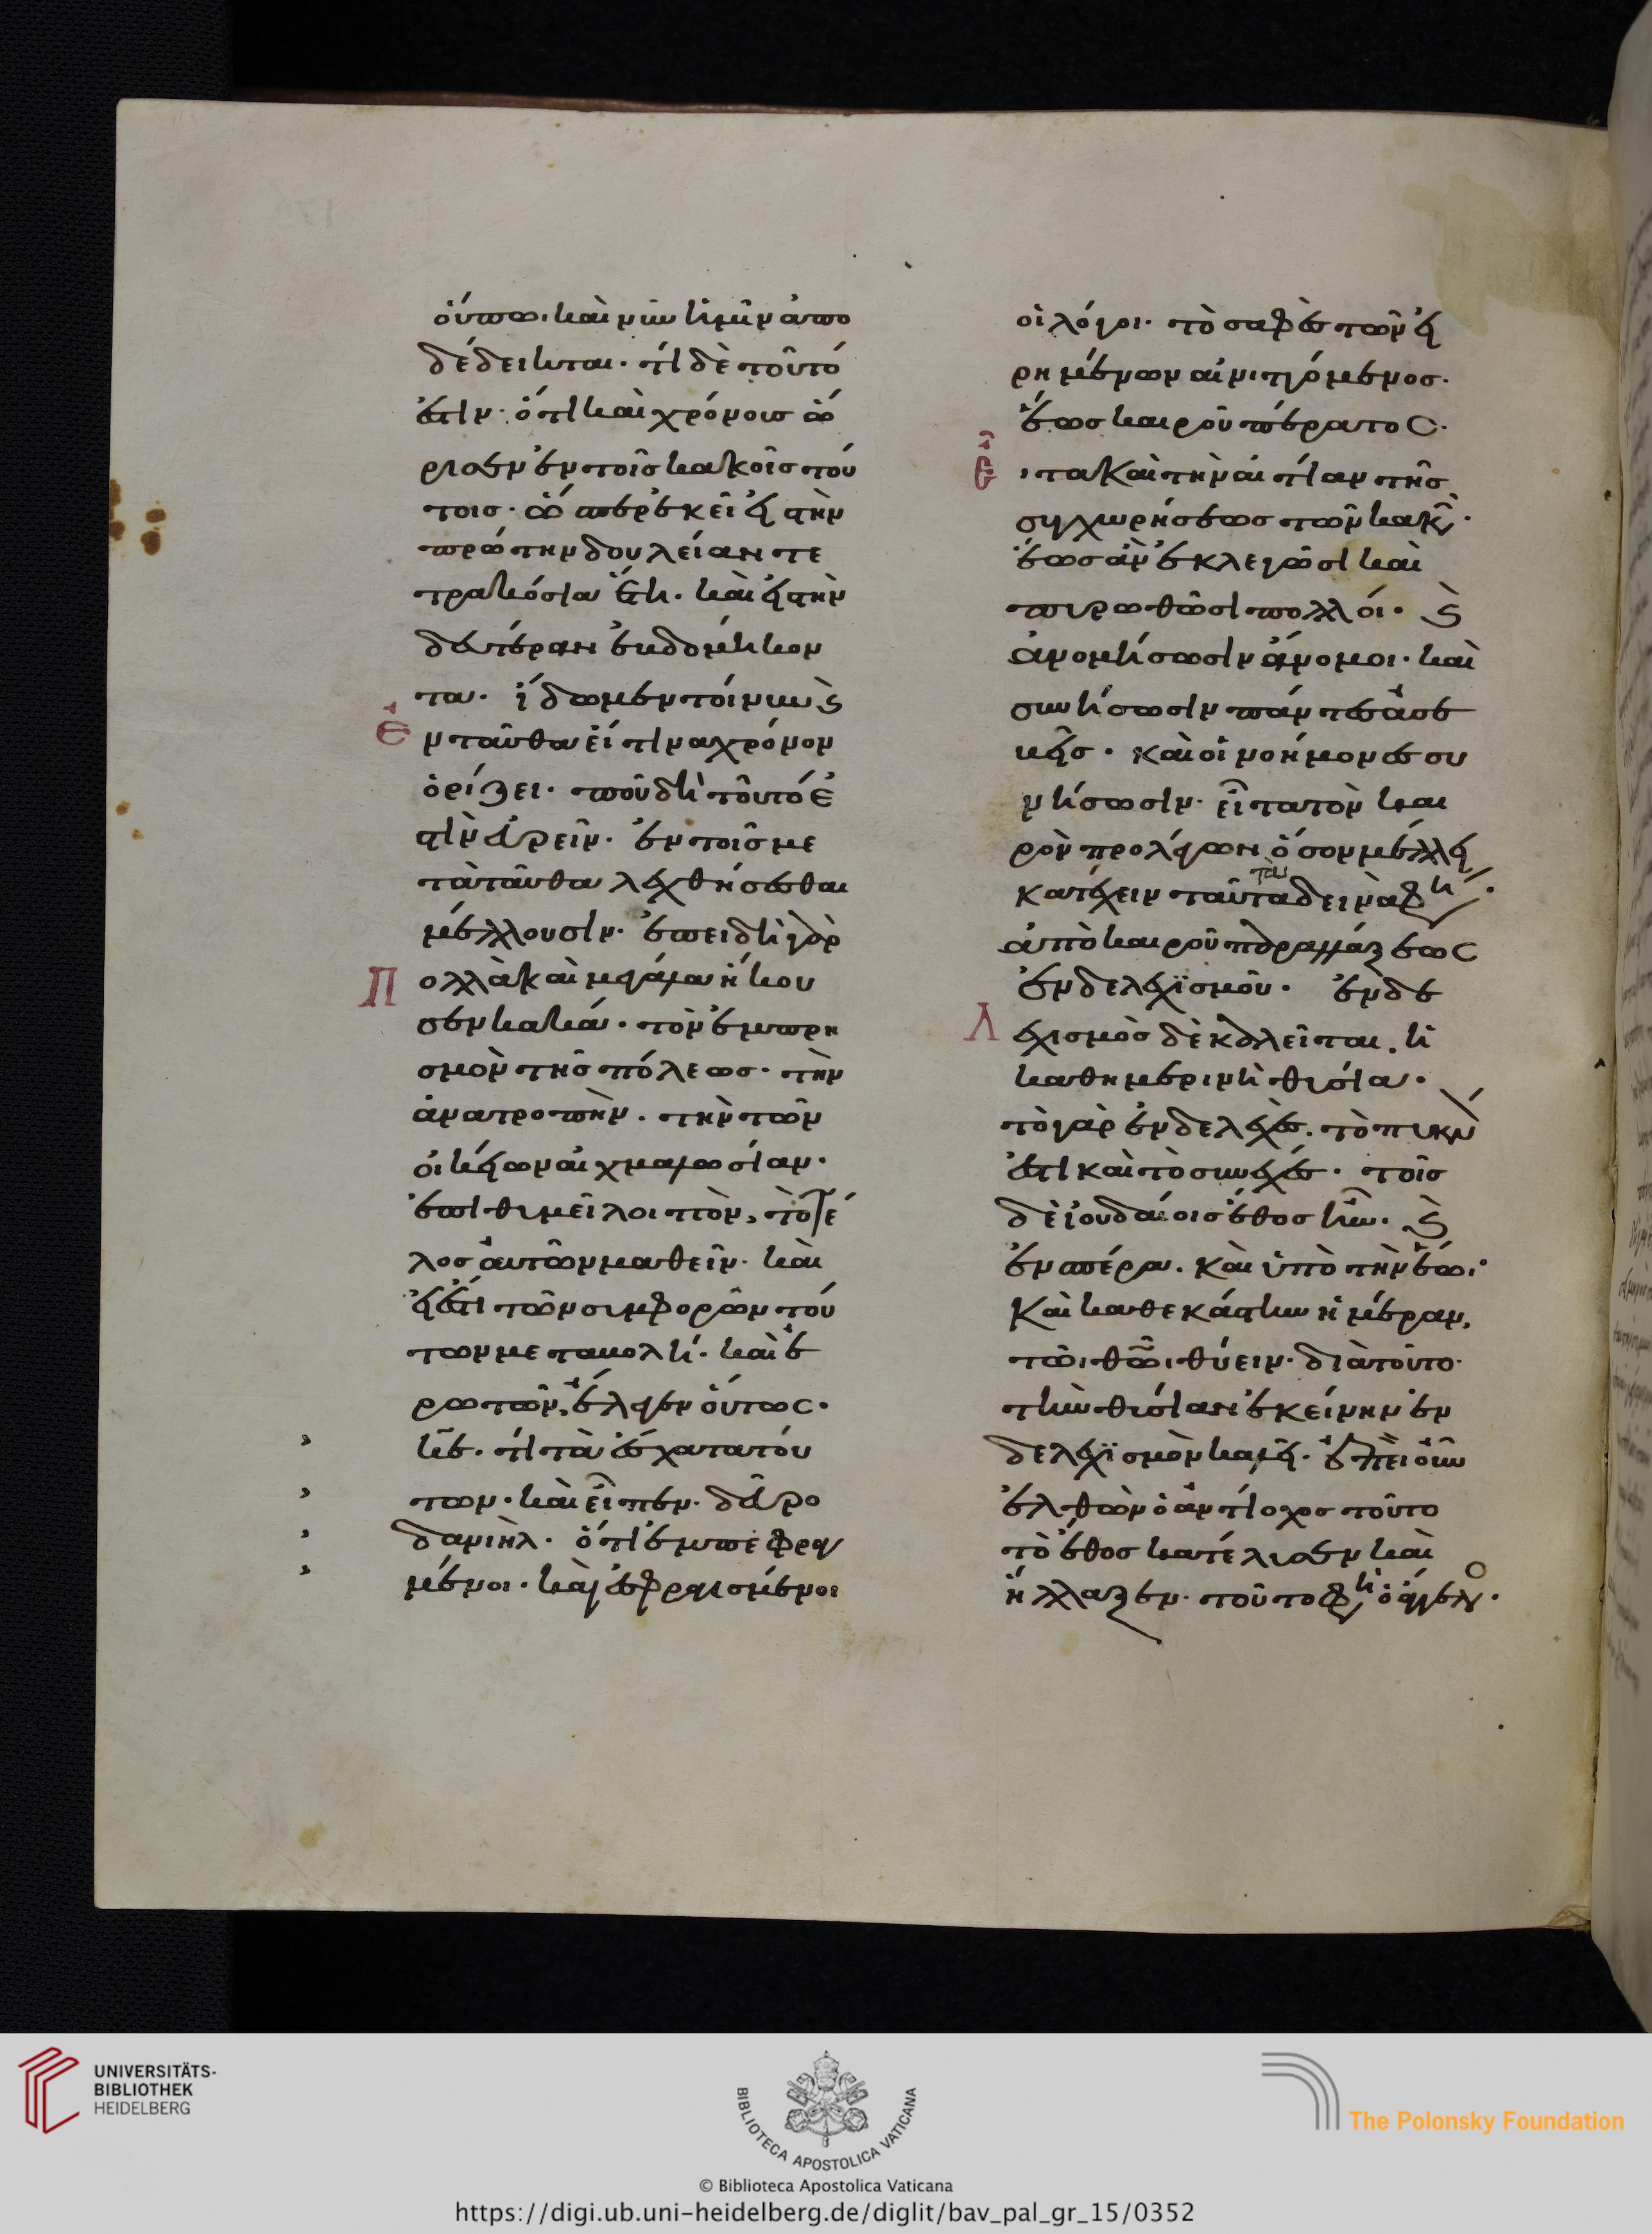 οὕπω. καὶ νῦν ἡμῖν ἀπο
δέδεικται. τί δὲ τοῦτό
ἐστιν. ὅτι καὶ χρόνοις ὥ
ρισεν ἐν τοῖς κακοῖς τού
τοις. ὥσπερ ἐκεῖ εἰς τὴν
πρώτην δουλείαν τε
τρακόσια ἔτη. καὶ εἰς τὴν
δευτέραν ἑβδομήκον
τα. ἴδωμεν τοίνυν καὶ
ἐνταῦθα εἴ τινα χρόνον
ὁρίζει. ποῦ δὴ τοῦτό ἐ
στὶν εὑρεῖν. ἐν τοῖς με
τὰ ταῦτα λεχθήσεσθαι
μέλλουσιν. ἐπειδὴ γὰρ
πολλὰ καὶ μεγάλα ἤκου
σεν κακά. τὸν ἐμπρη
σμὸν τῆς πόλεως. τὴν
ἀνατροπὴν. τὴν τῶν
οἰκείων αἰχμαλωσίαν.
ἐπιθυμεῖ λοιπὸν, τὸ τέ
λος αὐτῶν μαθεῖν. καὶ
εἰ ἔσται τῶν συμφορῶν τού
των μεταβολή. καὶ ἐ
ρωτῶν, ἔλεγεν οὕτως.
κε. τί τὰ ἔσχατα τού
των. καὶ εἶπεν. δεῦρο
δανιὴλ. ὅτι ἐμπεφραγ
μένοι. καὶ ἐσφραγισμένοι
οἱ λόγοι. τὸ σαφὲς τῶν εἰ
ρημένων αἰνιττόμενος.
ἕως καιροῦ πέρατος.
εἶτα καὶ τὴν αἰτίαν τῆς
συγχωρήσεως τῶν κακῶν.
ἕως ἂν ἐκλεγῶσι καὶ
πυρωθῶσι πολλοί. καὶ
ἀνομήσωσιν ἄνομοι. καὶ
συνήσωσιν πάντες ἀσε
βεῖς. καὶ οἱ νοήμονες συ
νήσωσιν. εἶτα τὸν και
ρὸν προλέγων ὅσον μέλλει
κατέχειν ταῦτα τὰ δεινὰ φησίν.
ἀπὸ καιροῦ παραλλάξεως
ἐνδελεχϊσμοῦ. ἐνδε
λεχισμὸς δὲ καλεῖται. ἡ
καθημερινὴ θυσία.
τὸ γὰρ ἐνδελεχὲς. τὸ πυκνὸν
ἐστι καὶ τὸ συνεχές. τοῖς
δὲ ἰουδαίοις ἔθος ἦν. καὶ
ἐν ἑσπέρα. καὶ ὑπὸ τὴν ἕωι.
καὶ καθεκάστην ἡμέραν,
τῶι θῶι θύειν. διὰ τοῦτο.
τὴν θυσίαν ἐκείνην ἐν
δελεχϊσμὸν καλεῖ. ἐπεὶ οὖν
ἐλθὼν ὁ ἀντίοχος τοῦτο
τὸ ἔθος κατέλυσεν καὶ
ἤλλαξεν. τοῦτο φησὶ ὁ ἄγγελος.
UNIVERSITÄTS-
BIBLIOTHEK
HEIDELBERG
BIBLIOTECA APOSTOLICA VATICANA
The Polonsky Foundation
© Biblioteca Apostolica Vaticana
https://digi.ub.uni-heidelberg.de/diglit/bav_pal_gr_15/0352